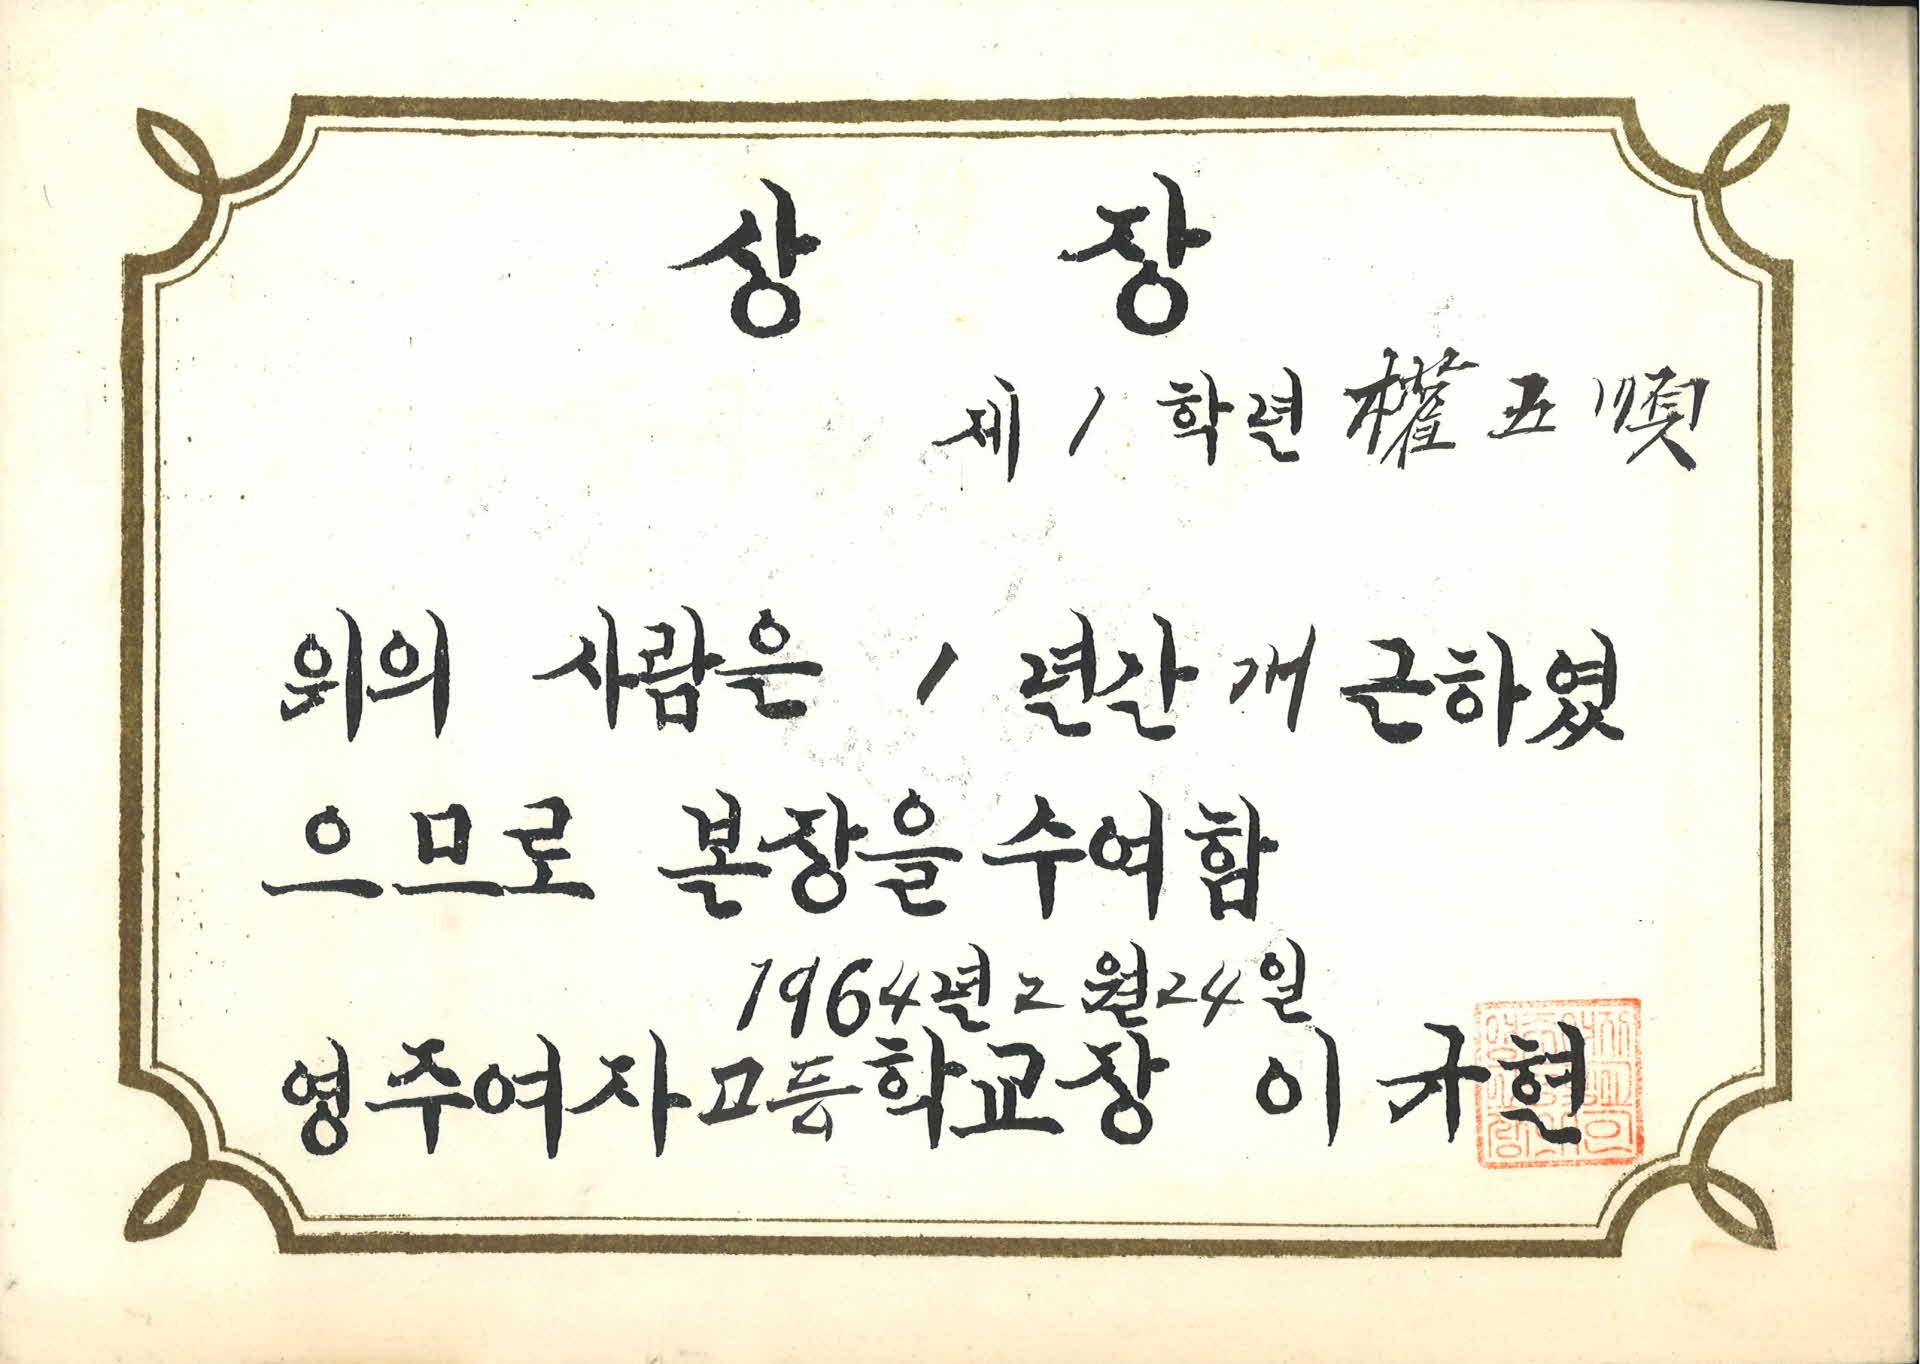 상 장
제 1 학년 權五順
위의 사람은 1 년간 개근하였
으므로 본장을 수여함
1964년 2월 24일
영주여자고등학교장 이규현